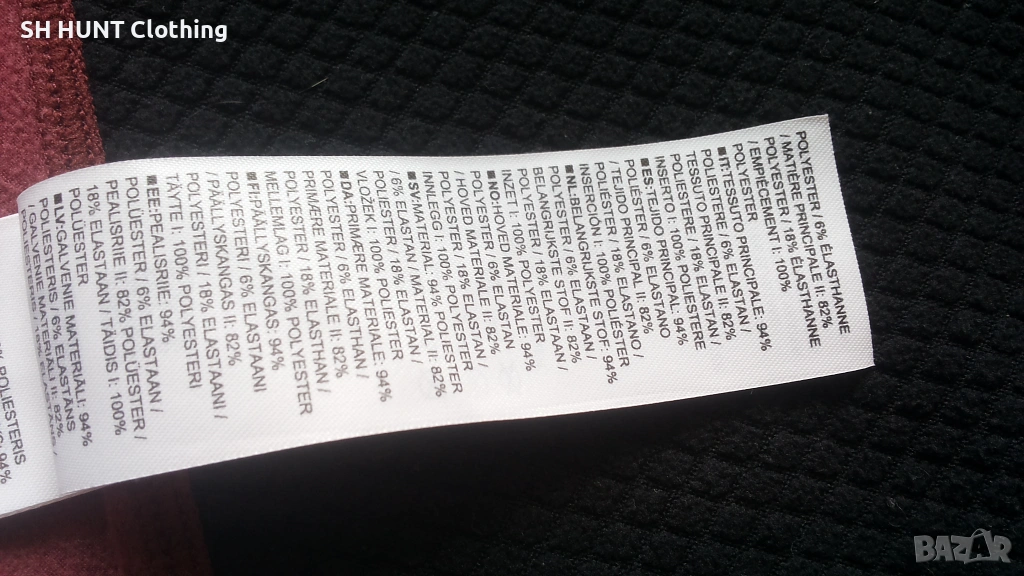 SH HUNT Clothing
POLYESTER / 6% ÉLASTHANNE
/ MATIÈRE PRINCIPALE II: 82%
POLYESTER / 18% ÉLASTHANNE
/ EMPIÈCEMENT I: 100%
POLYESTER
■IT:TESSUTO PRINCIPALE: 94%
POLIESTERE / 6% ELASTAN /
TESSUTO PRINCIPALE II: 82%
POLIESTERE / 18% ELASTAN /
INSERTO I: 100% POLIESTERE
■ES:TEJIDO PRINCIPAL: 94%
POLIÉSTER / 6% ELASTANO
/ TEJIDO PRINCIPAL II: 82%
POLIÉSTER / 18% ELASTANO
INSERCIÓN I: 100% POLIÉSTER
■NL:BELANGRIJKSTE STOF: 94%
POLYESTER / 6% ELASTAAN /
BELANGRIJKSTE STOF II: 82%
POLYESTER / 18% ELASTAAN
INZET I: 100% POLYESTER
■NO:HOVED MATERIALE: 94%
POLYESTER / 6% ELASTAN
/ HOVED MATERIALE II: 82%
POLYESTER / 18% ELASTAN /
INNLEGG I: 100% POLYESTER
■SV:MATERIAL: 94% POLIESTER
/ 6% ELASTAN / MATERIAL II: 82%
POLIESTER / 18% ELASTAN /
VLOŽEK I: 100% POLIESTER
■DA:PRIMÆRE MATERIALE: 94%
POLYESTER / 6% ELASTHAN /
PRIMÆRE MATERIALE II: 82%
POLYESTER / 18% ELASTHAN /
MELLEMLAG I: 100% POLYESTER
■FI:PÄÄLLYSKANGAS: 94%
POLYESTERI / 6% ELASTAANI
/ PÄÄLLYSKANGAS II: 82%
POLYESTERI / 18% ELASTAANI /
TÄYTE I: 100% POLYESTERI
■EE:PEALISRIIE: 94%
POLÜESTER / 6% ELASTAAN /
PEALISRIIE II: 82% POLÜESTER /
18% ELASTAAN / TÄIDIS I: 100%
POLÜESTER
■LV:GALVENIE MATERIĀLI: 94%
POLIESTERIS / 6% ELASTĀNS
/ GALVENIE MATERIĀLI II: 82%
POLIESTERIS / 18% ELASTĀNS /
POLIESTERIS
94%
BAZAR